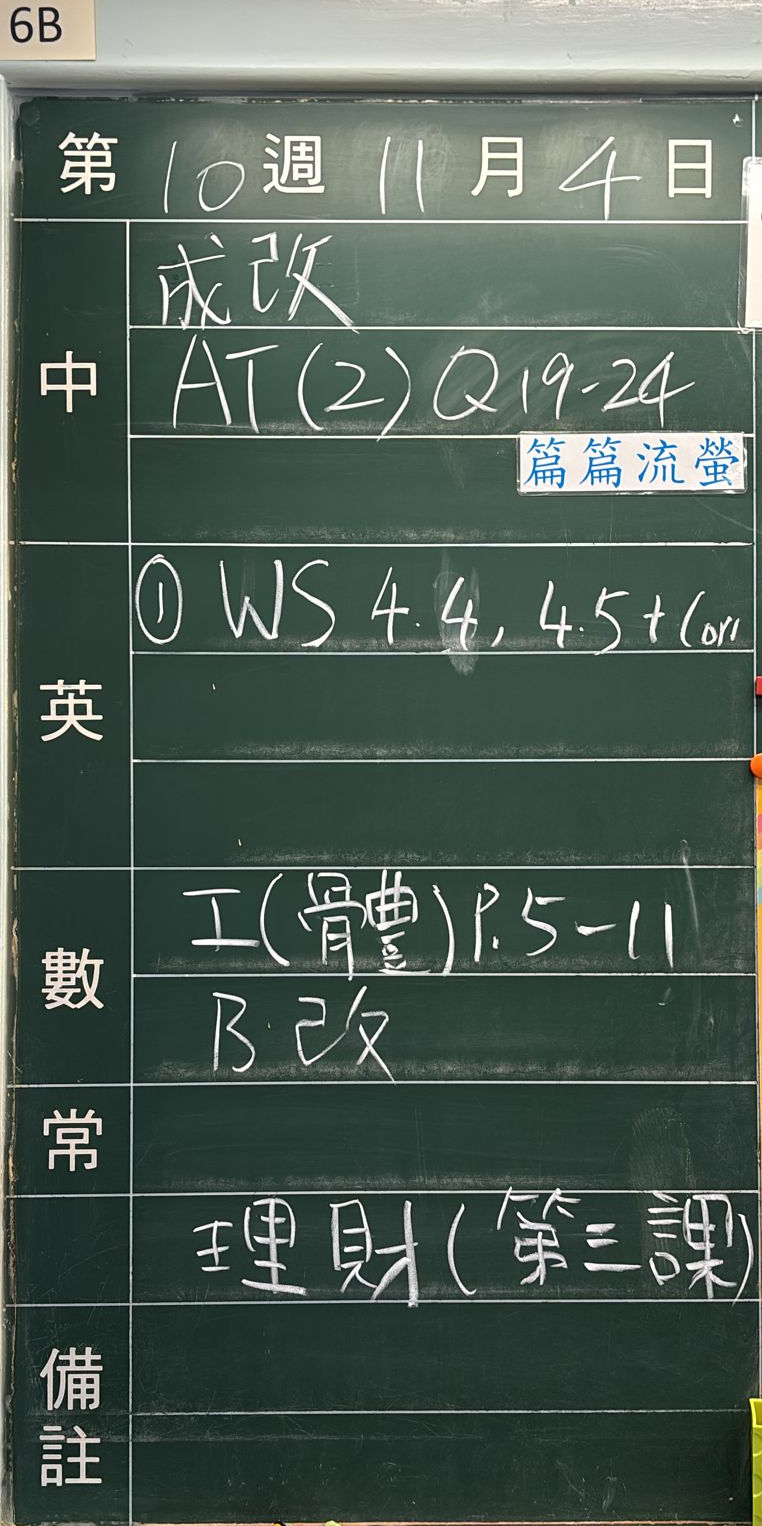 6B
第 10 週 11 月 4 日
中
成改
AT(2) Q19-24
篇篇流螢
英
① WS 4.4, 4.5 + Corr
數
工(體)P.5-11
B.改
常
理財(第三課)
備註